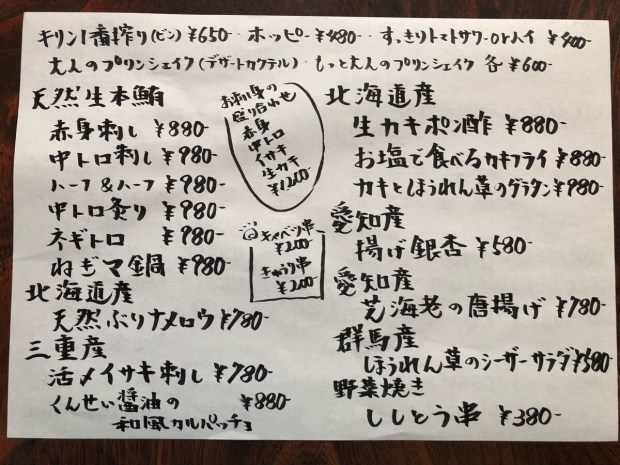 キリン1番搾り(ビン)¥650- ホッピー¥480- すっきりトマトサワーorハイ ¥400-
大人のプリンシェイク(デザートカクテル)・もっと大人のプリンシェイク 各¥600-
天然生本鮪
赤身刺し ¥880-
中トロ刺し ¥980-
ハーフ&ハーフ ¥980-
中トロ炙り ¥980-
ネギトロ ¥980-
ねぎマ鍋 ¥980-
北海道産
天然ぶりナメロウ¥780-
三重産
活〆イサキ刺し ¥780-
くんせい醤油の ¥880-
和風カルパッチョ
お刺身の
盛り合わせ
赤身
中トロ
イサキ
生カキ
¥1200-
キャベツ串
¥200-
きゅうり串
¥200-
北海道産
生カキポン酢 ¥880-
お塩で食べるカキフライ ¥880-
カキとほうれん草のグラタン¥980-
愛知産
揚げ銀杏 ¥580-
愛知産
芝海老の唐揚げ ¥780-
群馬産
ほうれん草のシーザーサラダ¥580-
野菜焼き
ししとう串 ¥380-